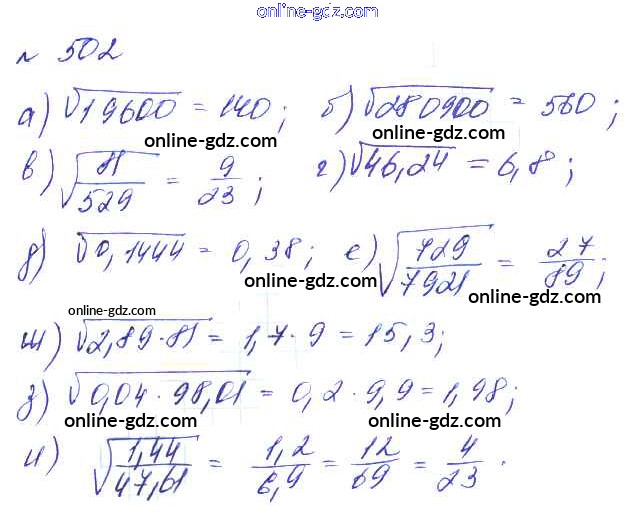 online-gdz.com
№ 502
а) √19600 = 140; б) √280900 = 530;
online-gdz.com online-gdz.com
в) √(81/529) = 9/23; г) √46,24 = 6,8;
д) √0,1444 = 0,38; е) √(729/7921) = 27/89;
online-gdz.com online-gdz.com
online-gdz.com
ж) √2,89·81 = 1,7·9 = 15,3;
з) √0,04·98,01 = 0,2·9,9 = 1,98;
online-gdz.com online-gdz.com
и) √(1,44/47,61) = 1,2/6,9 = 12/69 = 4/23.
online-gdz.com